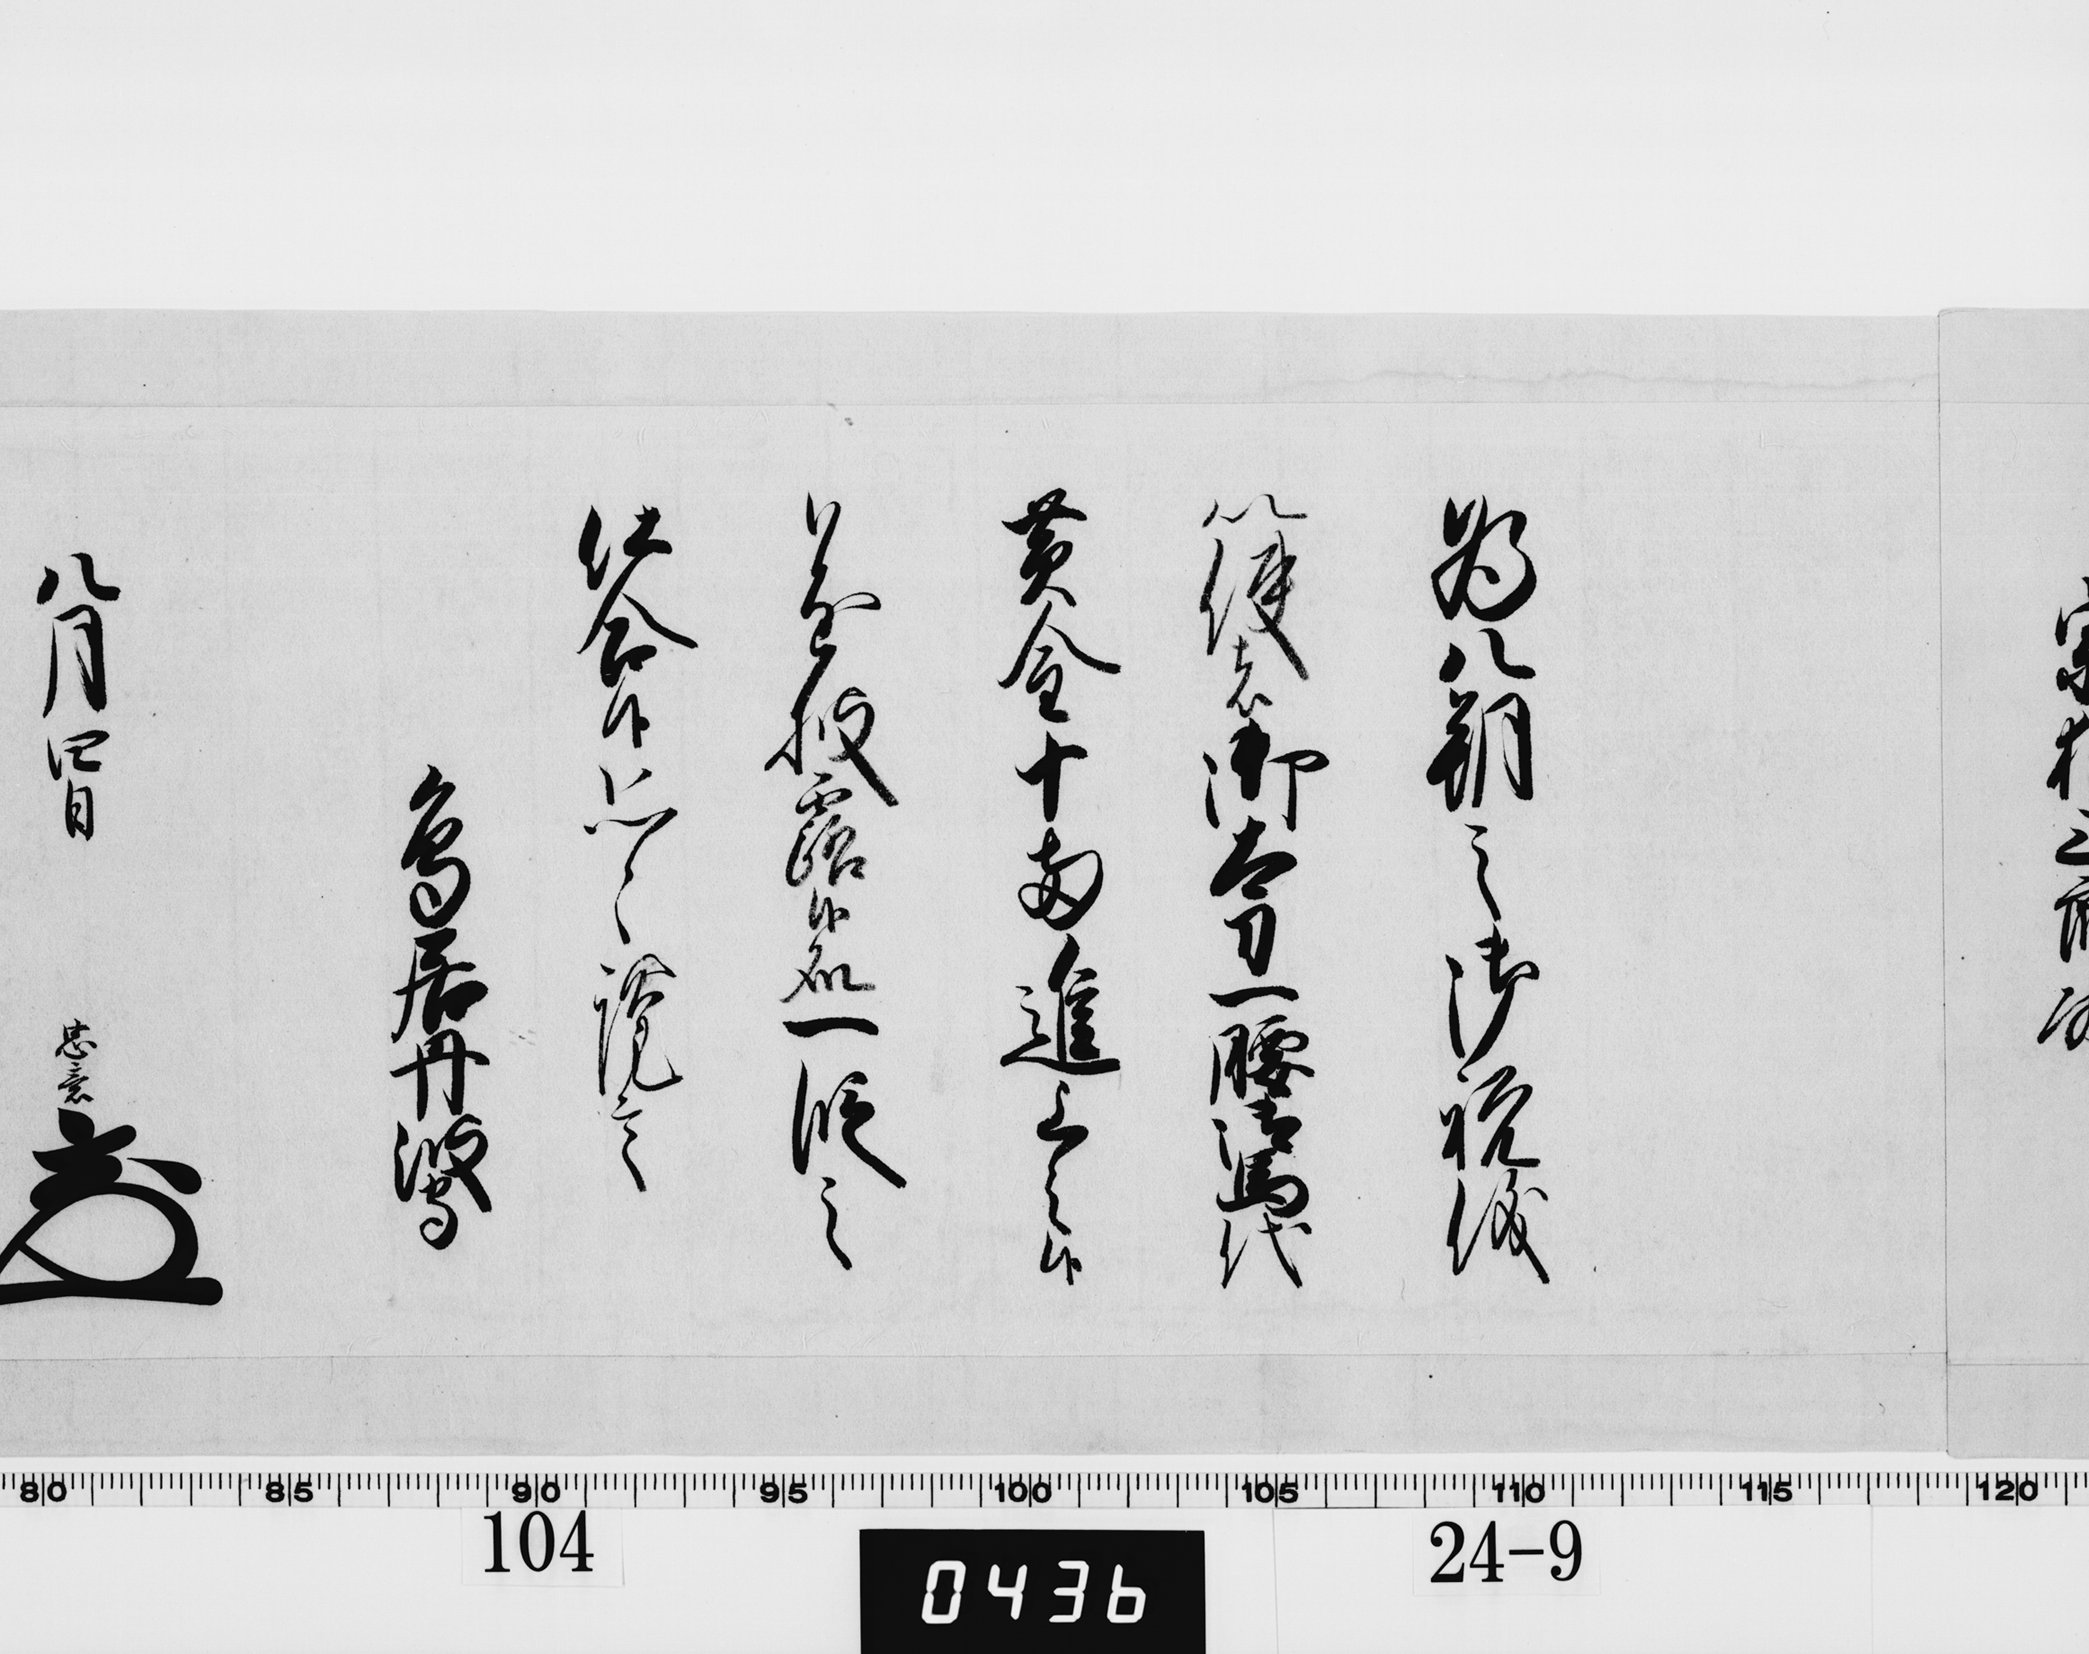 為八朔之御祝儀
以使者御太刀一腰御馬代
黄金十両進上之候
遂披露候処一段之
仕合候恐々謹言
鳥居丹波守
八月四日
忠意
80 85 90 95 100 105 110 115 120
104
0436
24-9